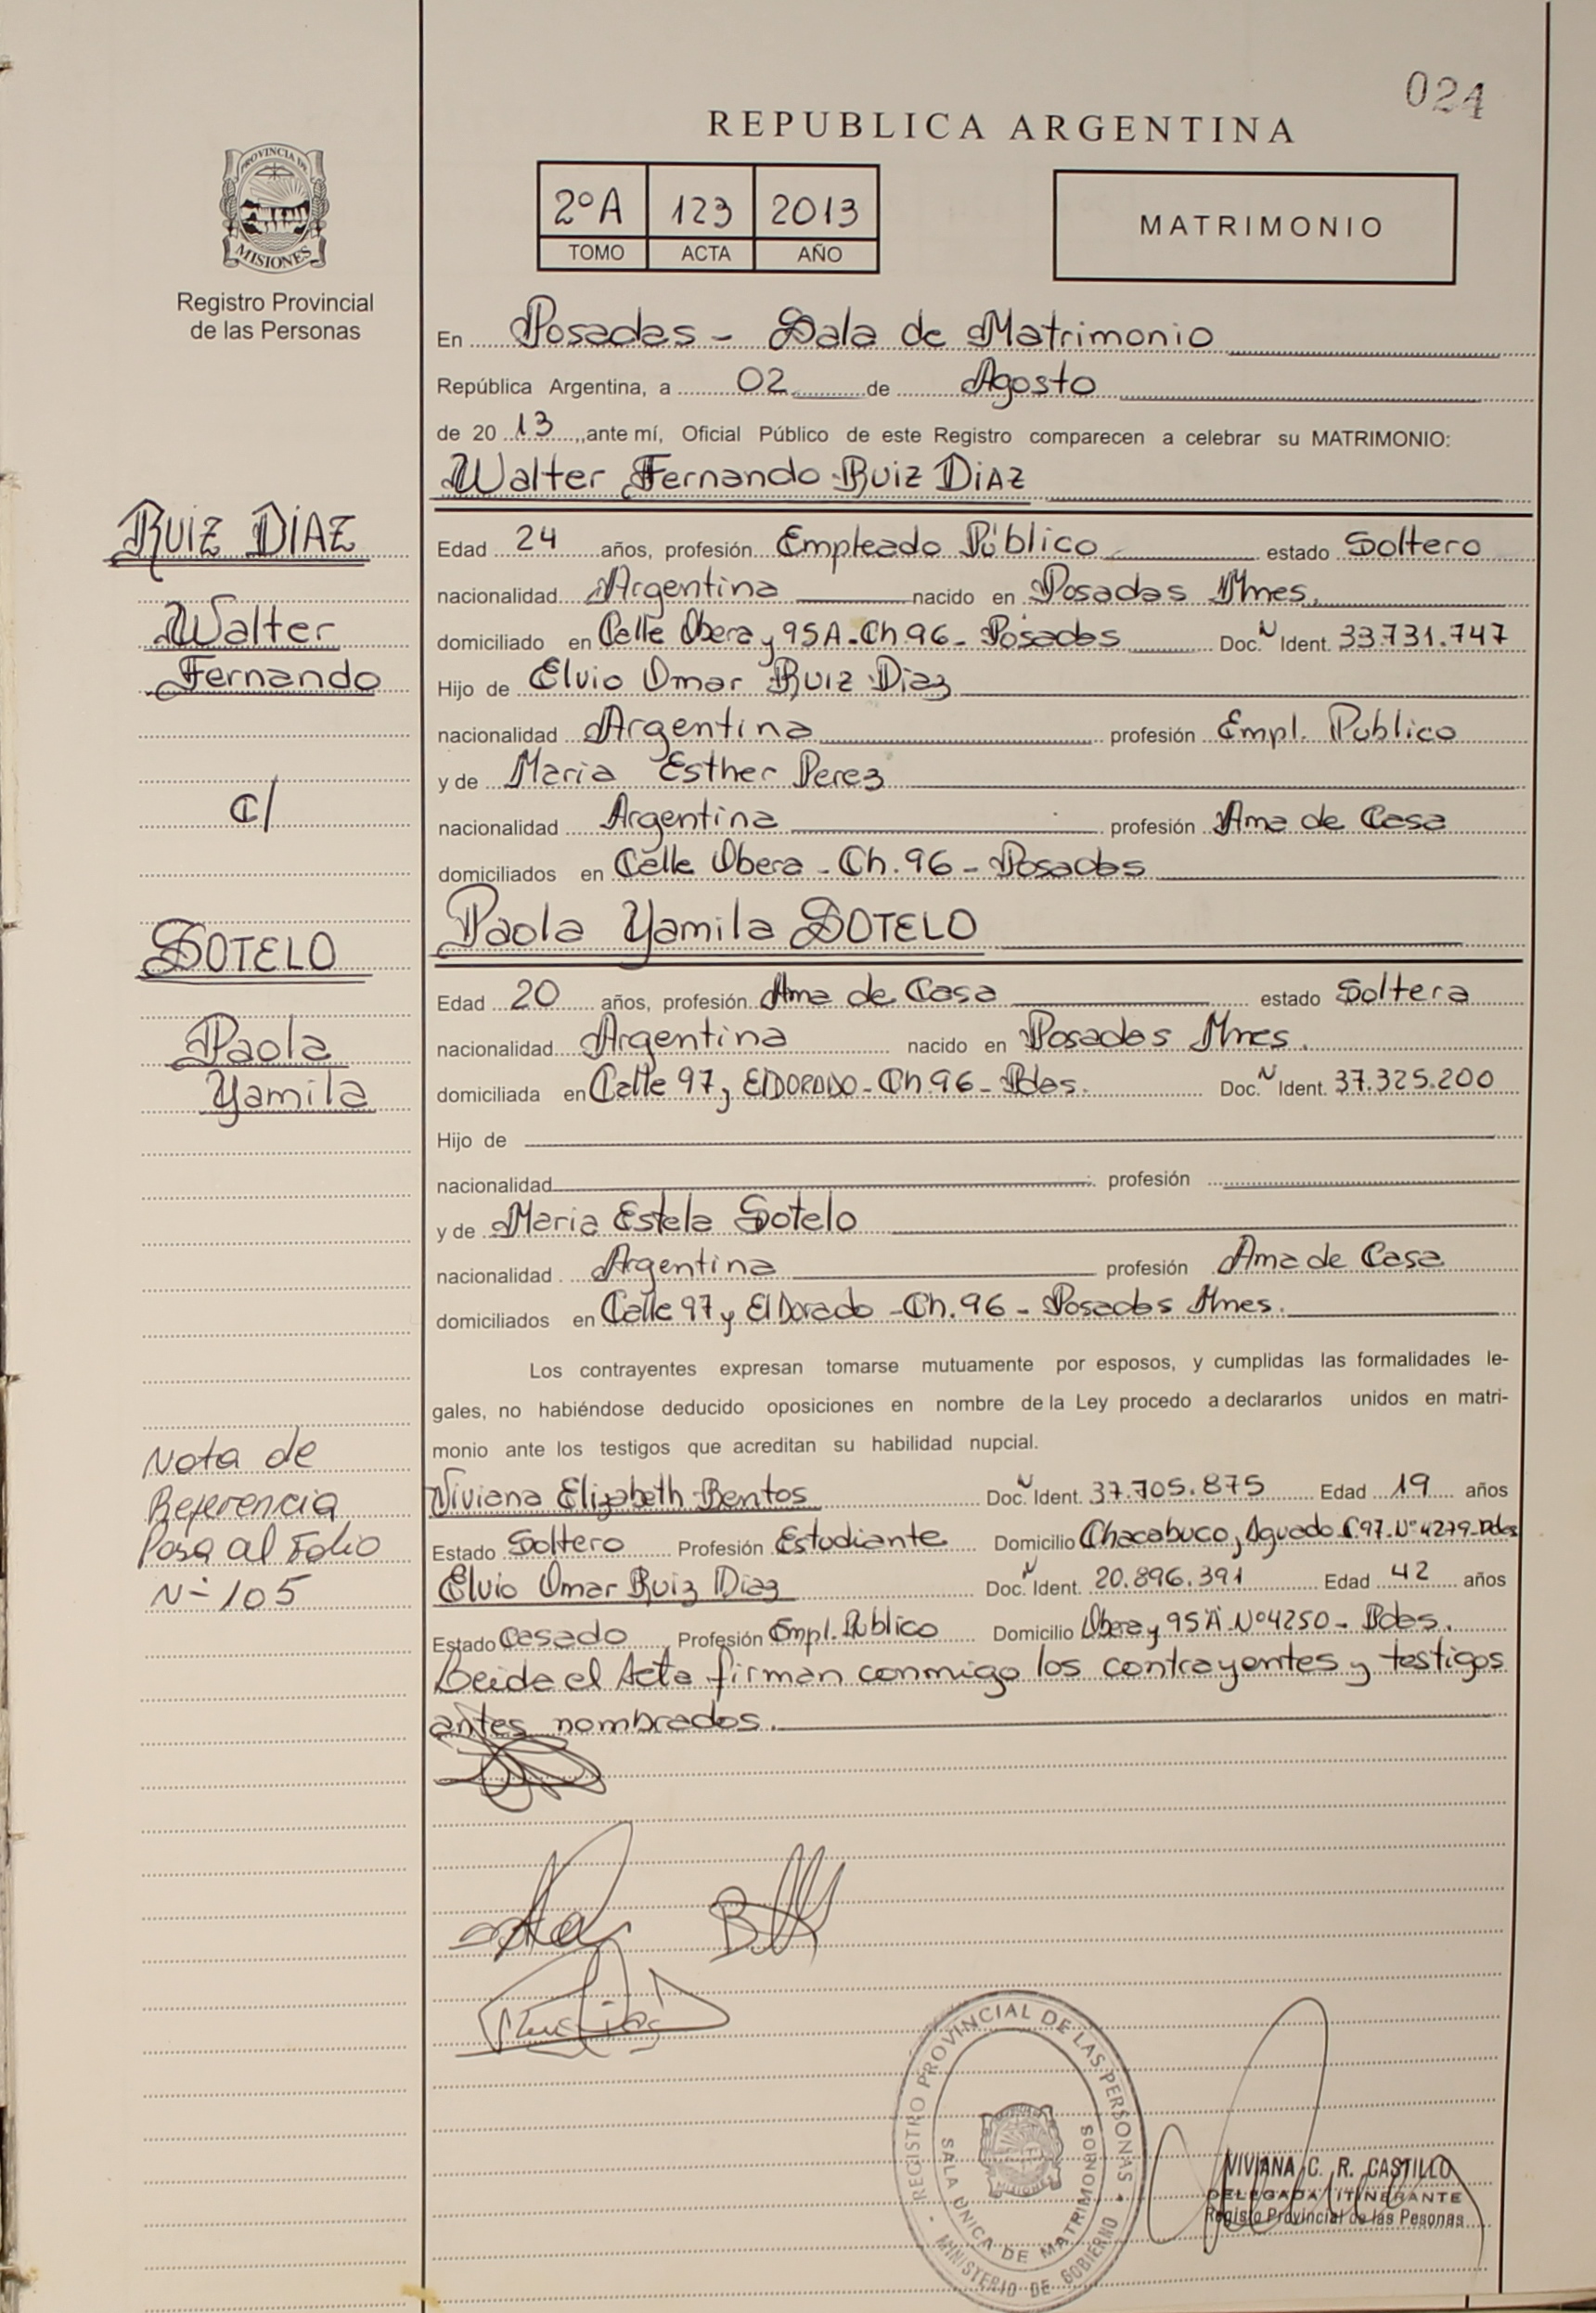 024
REPUBLICA ARGENTINA
PROVINCIA DE
MISIONES
Registro Provincial
de las Personas
2º A 123 2013
TOMO ACTA AÑO
MATRIMONIO
En Posadas - Sala de Matrimonio
República Argentina, a 02 de Agosto
de 20 13, ante mí, Oficial Público de este Registro comparecen a celebrar su MATRIMONIO:
Walter Fernando RUIZ DIAZ
RUIZ DIAZ
Walter
Fernando
C/
SOTELO
Paola
Yamila
Edad 24 años, profesión Empleado Público estado Soltero
nacionalidad Argentina nacido en Posadas Mnes.
domiciliado en Calle Obera y 95A - Ch. 96 - Posadas Doc. N Ident. 33.731.747
Hijo de Elvio Omar Ruiz Diaz
nacionalidad Argentina profesión Empl. Publico
y de Maria Esther Perez
nacionalidad Argentina profesión Ama de Casa
domiciliados en Calle Obera - Ch. 96 - Posadas
Paola Yamila SOTELO
Edad 20 años, profesión Ama de Casa estado Soltera
nacionalidad Argentina nacido en Posadas Mnes.
domiciliada en Calle 97 y ElDORADO - Ch 96 - Pdas. Doc. N Ident. 37.325.200
Hijo de
nacionalidad profesión
y de Maria Estela Sotelo
nacionalidad Argentina profesión Ama de Casa
domiciliados en Calle 97 y El Dorado - Ch. 96 - Posadas Mnes.
Los contrayentes expresan tomarse mutuamente por esposos, y cumplidas las formalidades le-
gales, no habiéndose deducido oposiciones en nombre de la Ley procedo a declararlos unidos en matri-
monio ante los testigos que acreditan su habilidad nupcial.
Nota de
Referencia
Pasa al Folio
Nº 105
Viviana Elizabeth Bentos Doc. N Ident. 37.705.875 Edad 19 años
Estado Soltero Profesión Estudiante Domicilio Chacabuco y Aguado C.97 Nº 4279 - Pdas
Elvio Omar Ruiz Diaz Doc. N Ident. 20.896.391 Edad 42 años
Estado Casado Profesión Empl. Publico Domicilio Obera y 95 A Nº 4250 - Pdas.
Leida el Acta firman conmigo los contrayentes y testigos
antes nombrados.
REGISTRO PROVINCIAL DE LAS PERSONAS
SALA UNICA DE MATRIMONIOS
MINISTERIO DE GOBIERNO
VIVIANA C. R. CASTILLO
DELEGADA ITINERANTE
Registo Provincial de las Pesonas